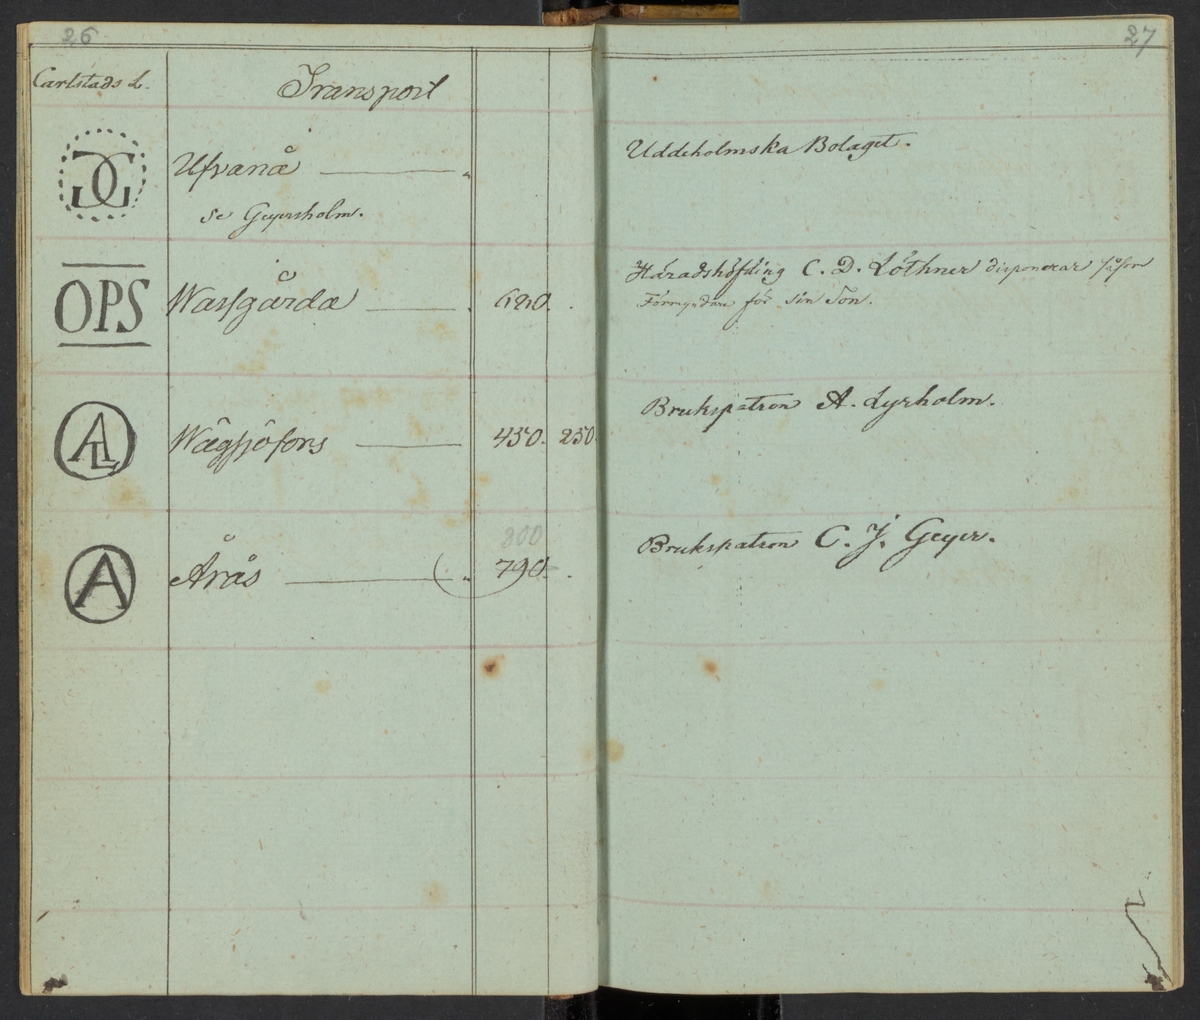 26
Carlstads L.
Transport
GG
Ufvanå
se Geyersholm.
Uddeholmska Bolaget.
OPS
Wassgårda
Häradshöfding C. D. Löthner disponerar såson
Förmyndare för sin Son.
AL
Wågsjöfors 450. 250.
Brukspatron A. Lyrholm.
A
800
Årås 790.
Brukspatron C. J. Geyer.
27